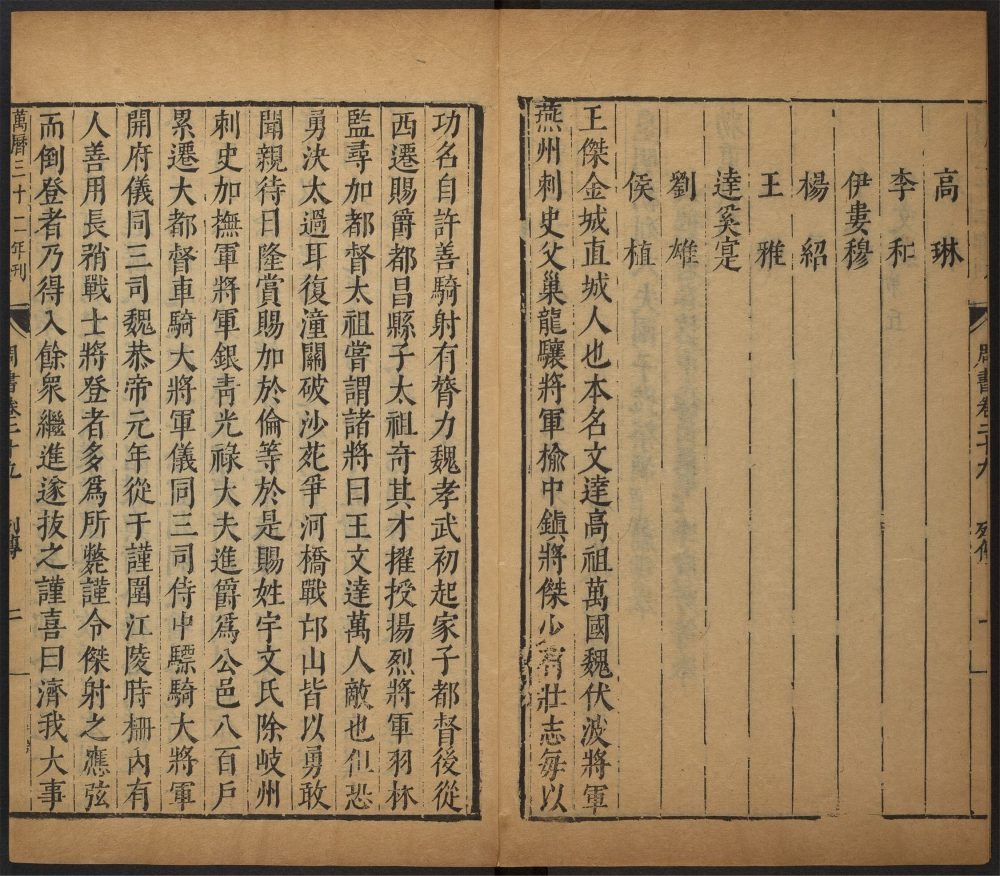 高琳
李和
伊婁穆
楊紹
王雅
達奚寔
劉雄
侯植
王傑金城直城人也本名文達高祖萬國魏伏波將軍
燕州刺史父巢龍驤將軍榆中鎮將傑少有壯志每以
周書卷二十九 列傳 一
功名自許善騎射有膂力魏孝武初起家子都督後從
西遷賜爵都昌縣子太祖奇其才擢授揚烈將軍羽林
監尋加都督太祖嘗謂諸將曰王文達萬人敵也但恐
勇決太過耳復潼關破沙苑爭河橋戰邙山皆以勇敢
聞親待日隆賞賜加於倫等於是賜姓宇文氏除岐州
刺史加撫軍將軍銀青光祿大夫進爵爲公邑八百戶
累遷大都督車騎大將軍儀同三司侍中驃騎大將軍
開府儀同三司魏恭帝元年從于謹圍江陵時柵內有
人善用長矟戰士將登者多爲所斃謹令傑射之應弦
而倒登者乃得入餘衆繼進遂拔之謹喜曰濟我大事
萬曆三十二年刊 周書卷二十九 列傳 二